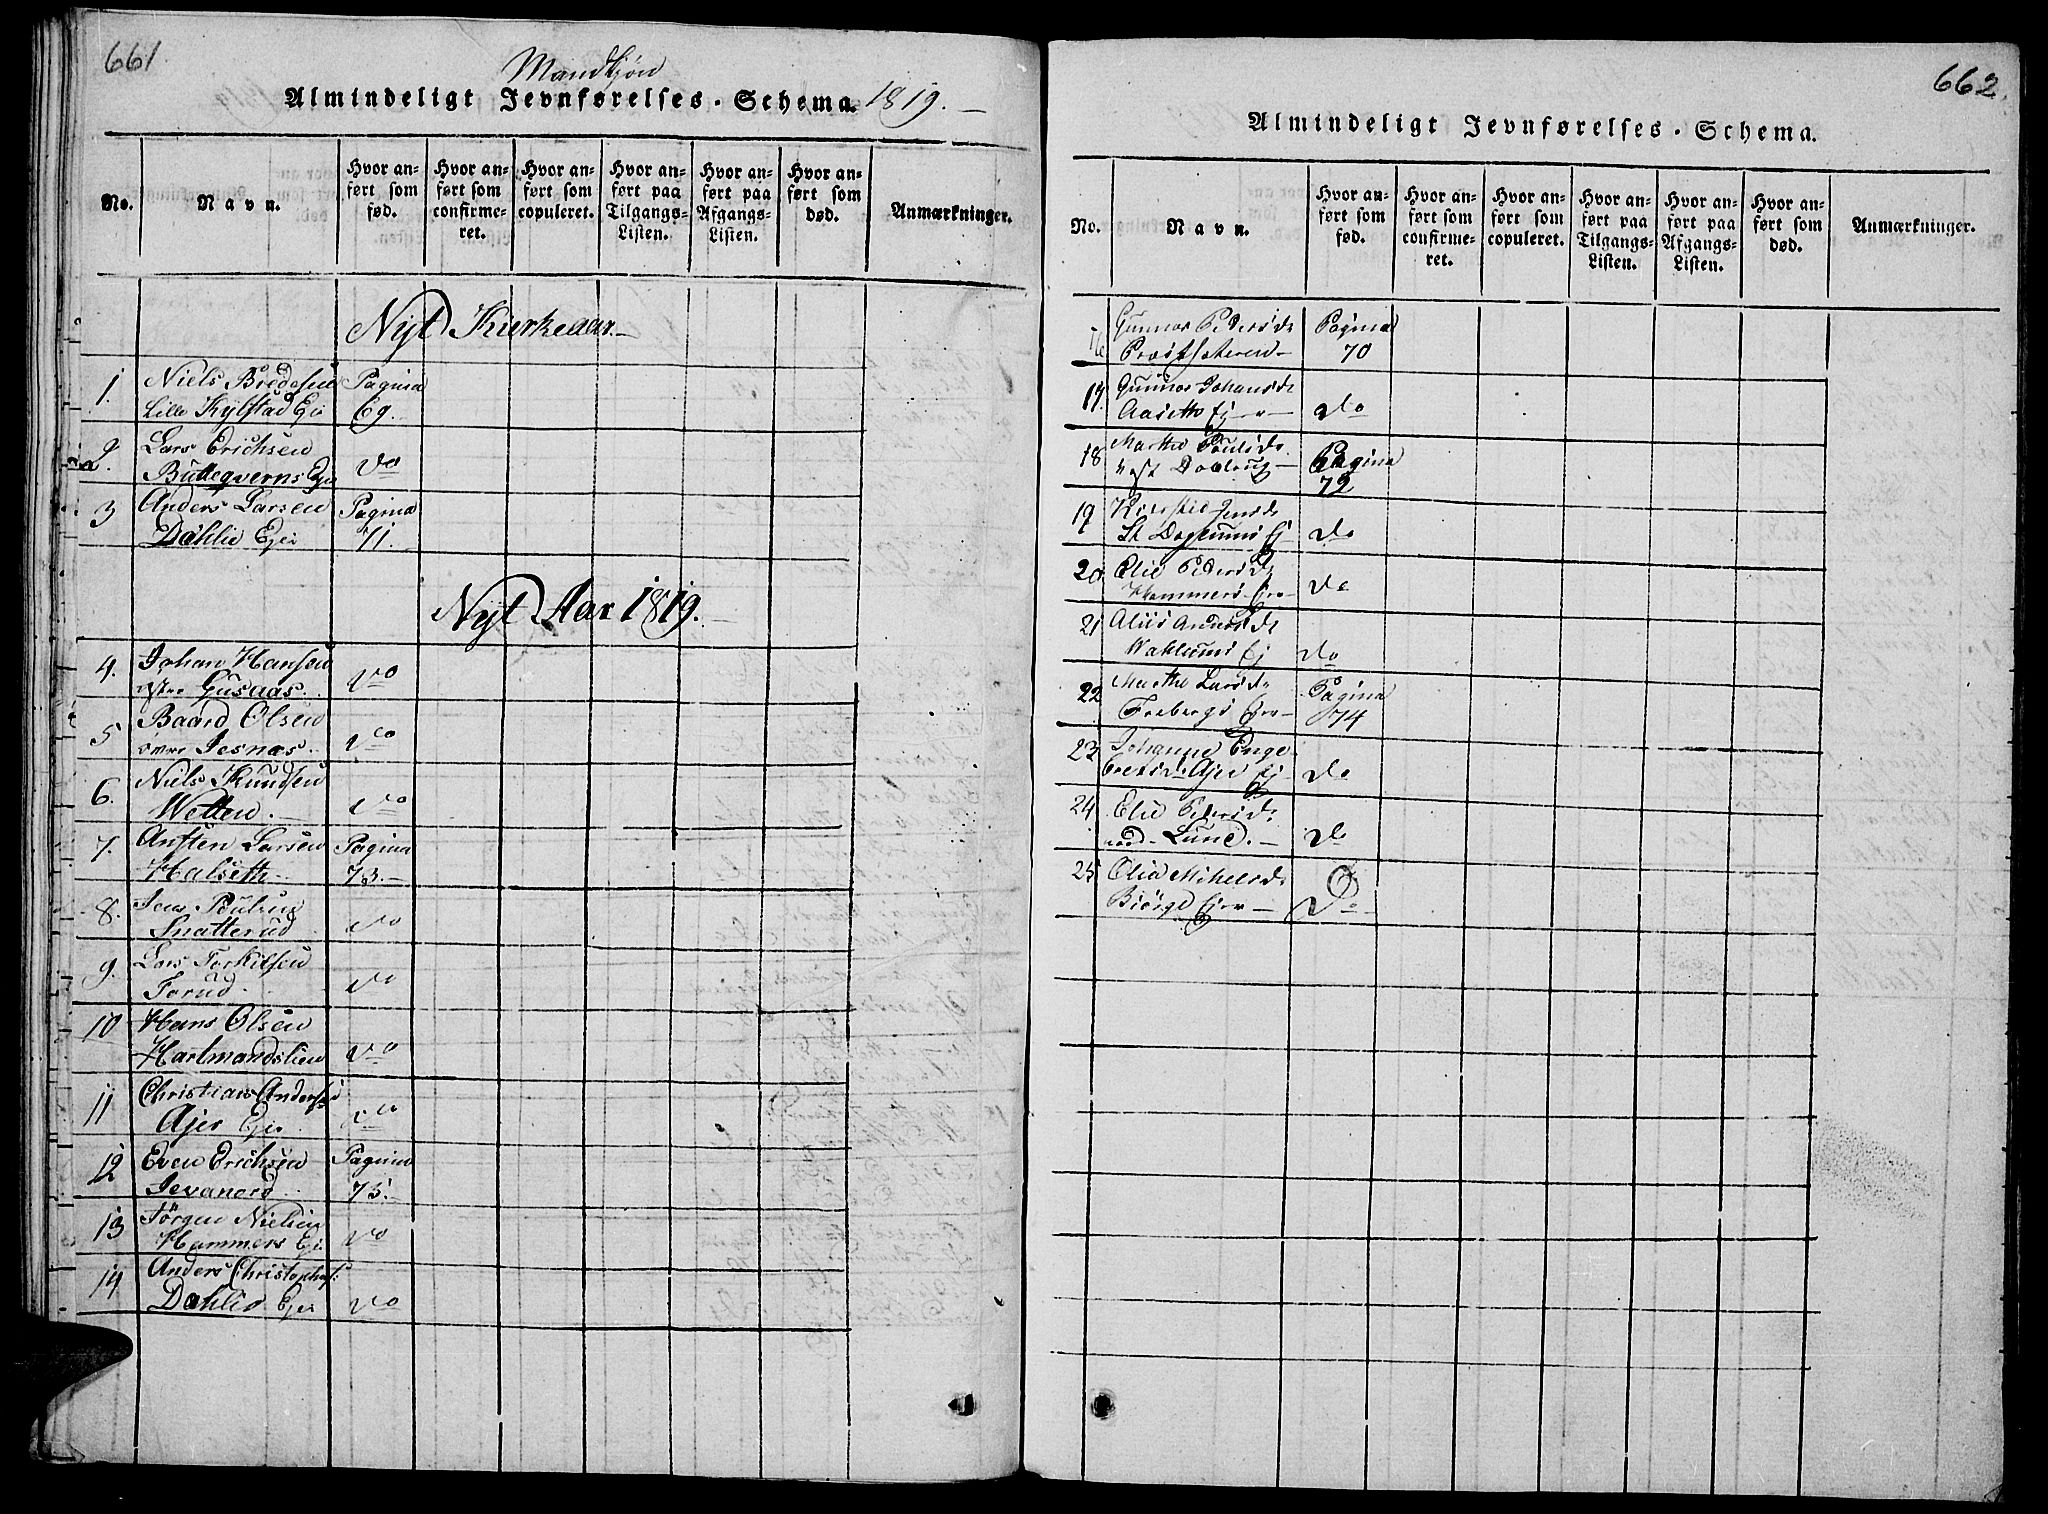 661
Mandkjøn
Almindeligt Jevnførelses-Schema. 1819.
No.
Navn.
Hvor anført som fød.
Hvor anført som confirmeret.
Hvor anført som copuleret.
Hvor anført paa Tilgangs-Listen.
Hvor anført paa Afgangs-Listen.
Hvor anført som død.
Anmærkninger.
Nyt Kirkeaar.
1. Niels Bredesen Pagina
Lille Kylstad Eje 69.
2. Lars Erichsen
Butteqverns Eje do
3 Anders Larsen Pagina
Dahlie Eje 71.
Nyt Aar 1819.
4. Johan Hansen
Gusaas. do
5 Baard Olsen
Jesnæs. do
6. Niels Knudsen
Wetten. do
7. Ansten Larsen Pagina
Halseth 73.
8. Jens Poulsen
Snatterud do
9. Lars Torkilsen
Forud do
10 Hans Olsen
Hartmandslien do
11 Christian Anders
Ajer Eje do
12 Even Erichsen Pagina
Jevanord 75.
13 Jørgen Nielsen
Hammers Eje do
14 Anders Christophs:
Dahlie Eje do
662.
Almindeligt Jevnførelses-Schema.
No.
Navn.
Hvor anført som fød.
Hvor anført som confirmeret.
Hvor anført som copuleret.
Hvor anført paa Tilgangs-Listen.
Hvor anført paa Afgangs-Listen.
Hvor anført som død.
Anmærkninger.
16 Gunnor Pedersd Pagina
70
17. Gunnor Johansd
Aasette Eje do
18 Marthe Poulsd Pagina
72
19 Kirstie Jensd
do
20 Elie Pedersd
Hammers Eje do
21 Aliis Andersd
Wahlums Ej do
22 Marthe Larsd Pagina
Frebergs Eje 74
23 Johanne Enge
bretsd Ajer Ej do
24 Elie Pedersd
nord Lund. do
25 Olia Mikelsd
Biørge Eje do